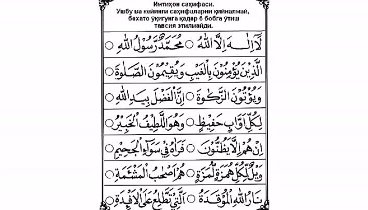 Имтиҳон саҳифаси.
Ушбу ва кейинги саҳифаларни қийналмай,
бехато ўқигунга қадар 6 бобга ўтиш
тавсия этилмайди.
لَآ إِلٰهَ إِلَّا اللّٰهُ ○ مُحَمَّدٌ رَّسُولُ اللّٰهِ
الَّذِينَ يُؤْمِنُونَ بِالْغَيْبِ وَيُقِيمُونَ الصَّلٰوةَ
وَيُؤْتُونَ الزَّكٰوةَ ○ إِنَّ الْفَضْلَ بِيَدِ اللّٰهِ
لِكُلِّ أَوَّابٍ حَفِيظٍ ○ وَهُوَ اللَّطِيفُ الْخَبِيرُ
إِنْ هُمْ إِلَّا يَظُنُّونَ ○ فَرَاٰهُ فِي سَوَآءِ الْجَحِيمِ
وَيْلٌ لِّكُلِّ هُمَزَةٍ لُّمَزَةٍ ○ هُمْ أَصْحٰبُ الْمَشْئَمَةِ
نَارُ اللّٰهِ الْمُوقَدَةُ ○ الَّتِي تَطَّلِعُ عَلَى الْأَفْئِدَةِ